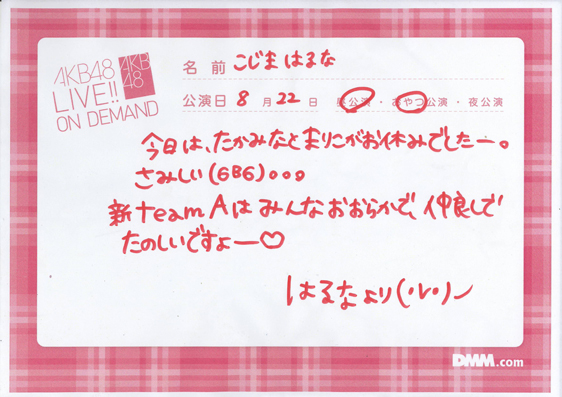 AKB48
LIVE!!
ON DEMAND
AKB
48
名前 こじまはるな
公演日 8月22日 昼公演・おやつ公演・夜公演
今日は、たかみなとまりこがお休みでしたー。
さみしい(6B6)。。。
新teamAはみんなおおらかで、仲良しで
たのしいですよー♡
はるなより(・V・)ノ
DMM.com